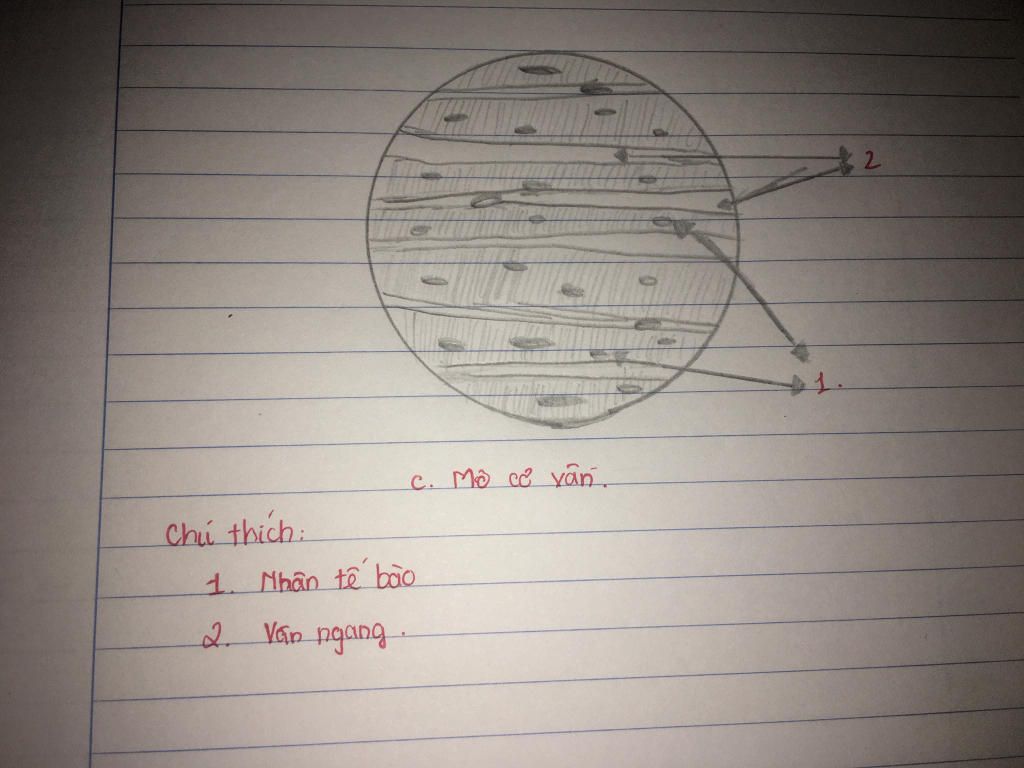 2
1.
c. Mô cơ vân.
Chú thích:
1. Nhân tế bào
2. Vân ngang.